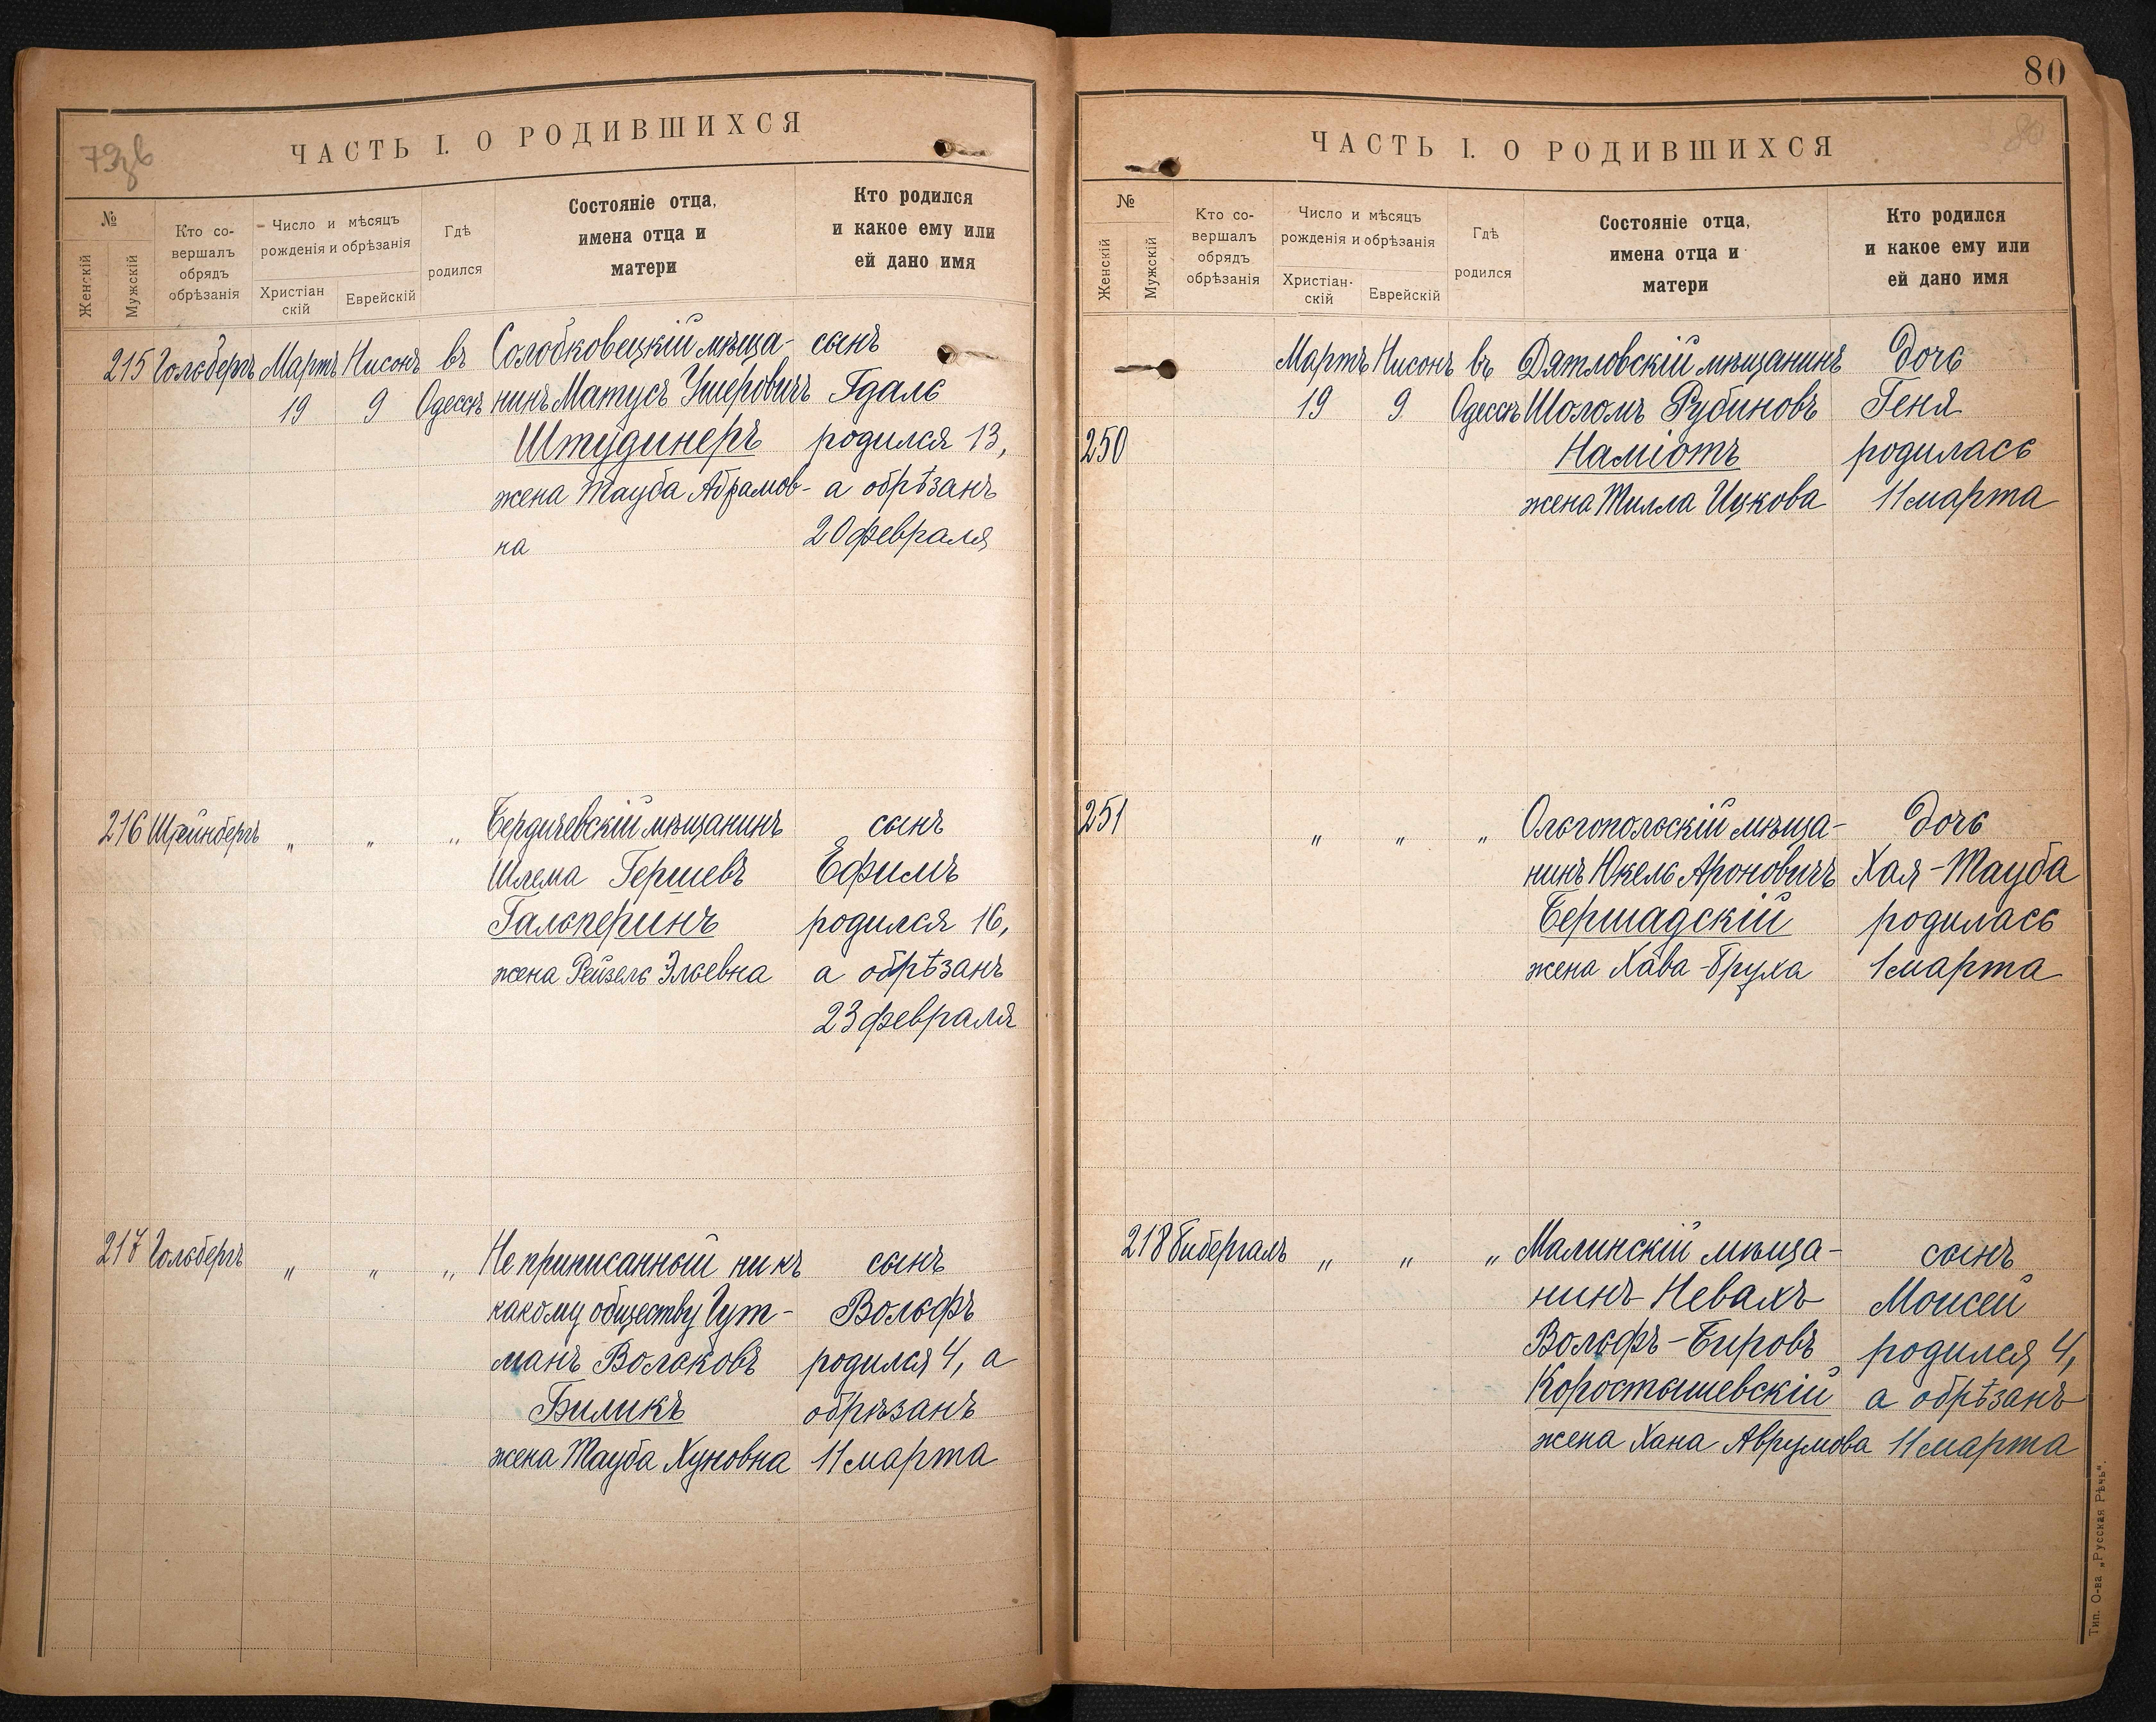 79 зв
ЧАСТЬ I. О РОДИВШИХСЯ
№
Женскій
Мужскій
Кто со-
вершалъ
обрядъ
обрѣзанія
Число и мѣсяцъ
рожденія и обрѣзанія
Христіан
скій
Еврейскій
Гдѣ
родился
Состояніе отца,
имена отца и
матери
Кто родился
и какое ему или
ей дано имя
215 Гольбергъ Мартъ Нисонъ въ Солобковецкій мѣща- сынъ
19 9 Одессѣ нинъ Матусъ Ушеровичъ Гдаль
Штудинеръ родился 13,
жена Тауба Абрамов- а обрѣзанъ
на 20 февраля
216 Штейнбергъ " " " Бердичевскій мѣщанинъ сынъ
Шлема Гершевъ Ефимъ
Гальперинъ родился 16,
жена Рейзель Эльевна а обрѣзанъ
23 февраля
217 Гольбергъ " " " Не приписанный ни къ сынъ
какому обществу Гут- Вольфъ
манъ Вольковъ родился 4, а
Биликъ обрѣзанъ
жена Тауба Хуновна 11 марта
80
80
ЧАСТЬ I. О РОДИВШИХСЯ
№
Женскій
Мужскій
Кто со-
вершалъ
обрядъ
обрѣзанія
Число и мѣсяцъ
рожденія и обрѣзанія
Христіан-
скій
Еврейскій
Гдѣ
родился
Состояніе отца,
имена отца и
матери
Кто родился
и какое ему или
ей дано имя
Мартъ Нисонъ въ Дятловскій мѣщанинъ дочь
19 9 Одессѣ Шоломъ Рубиновъ Геня
250 Наміотъ родилась
жена Тилла Ицкова 11 марта
251 " " " Ольгопольскій мѣща- дочь
нинъ Юкель Ароновичъ Хая-Тауба
Бершадскій родилась
жена Хава-Бруха 1 марта
218 Бибергалъ " " " Малинскій мѣща- сынъ
нинъ Невахъ Моисей
Вольфъ-Бировъ родился 4,
Коростышевскій а обрѣзанъ
жена Хана Аврумова 11 марта
Тип. О-ва „Русская Рѣчь".